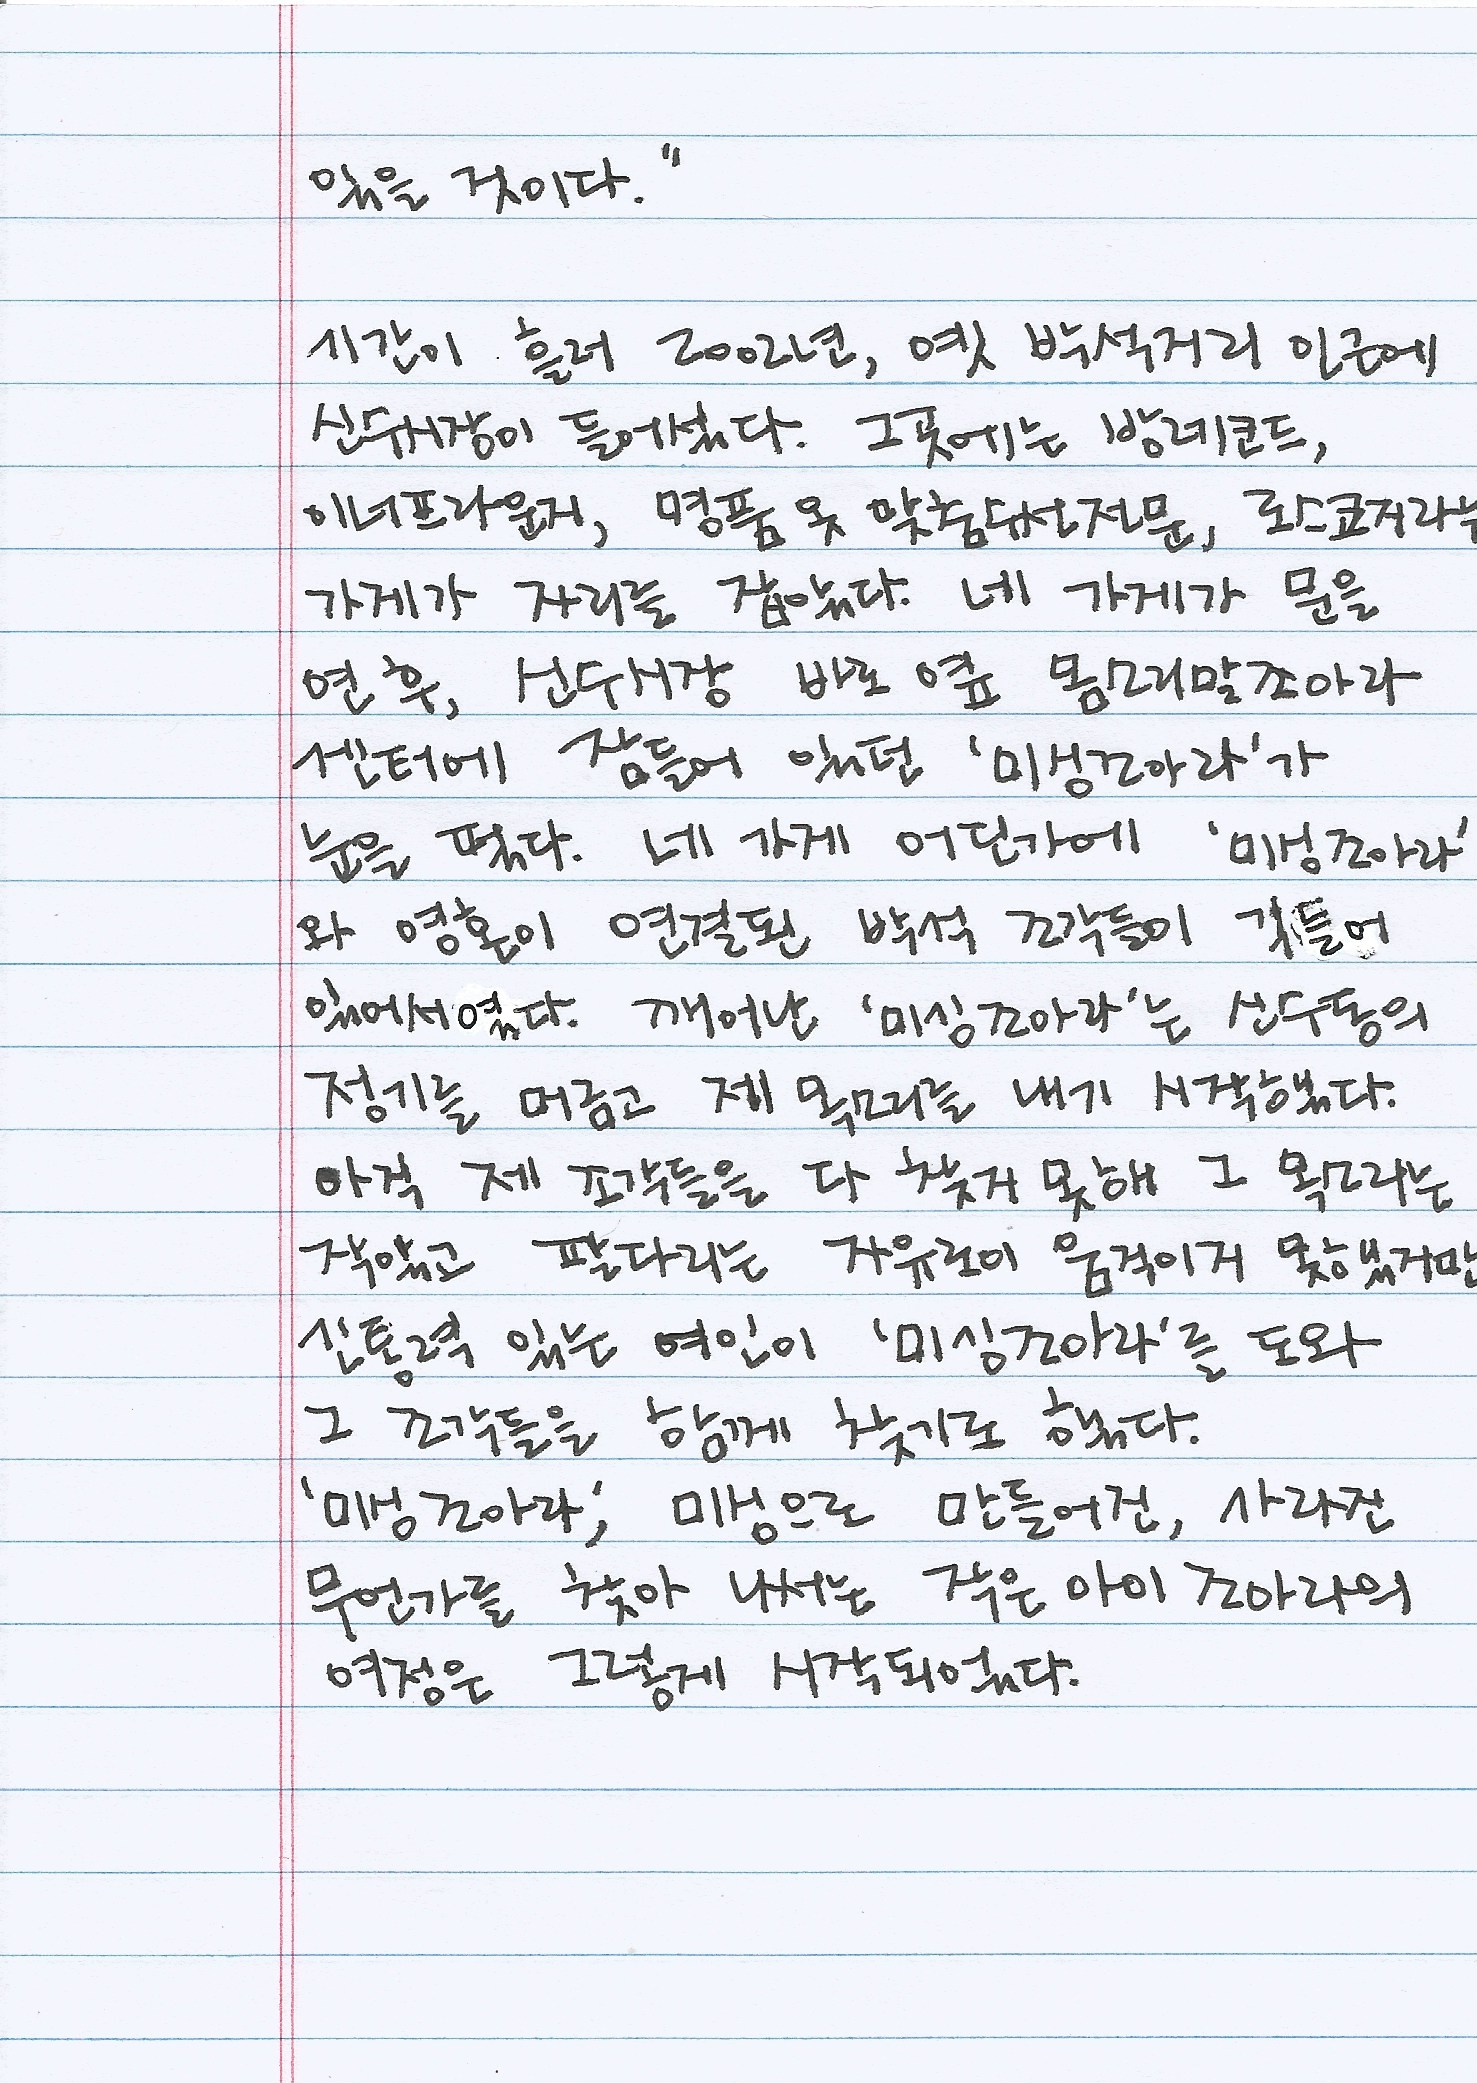 있을 것이다."
시간이 흘러 2002년, 옛 박석거리 인근에
신수시장이 들어섰다. 그곳에는 방레코드,
이너프라운지, 명품 옷 맞춤수선전문, 로스코지라는
가게가 자리를 잡았다. 네 가게가 문을
연 후, 신수시장 바로 옆 몸소리말조아라
센터에 잠들어 있던 '미싱조아라'가
눈을 떴다. 네 가게 어딘가에 '미싱조아라'
와 영혼이 연결된 박석 조각들이 깃들어
있어서였다. 깨어난 '미싱조아라'는 신수동의
정기를 머금고 제 목소리를 내기 시작했다.
아직 제 조각들을 다 찾지 못해 그 목소리는
작았고 팔다리는 자유로이 움직이지 못했지만
신통력 있는 여인이 '미싱조아라'를 도와
그 조각들을 함께 찾기로 했다.
'미싱조아라', 미싱으로 만들어진, 사라진
무언가를 찾아 나서는 작은 아이 조아라의
여정은 그렇게 시작되었다.